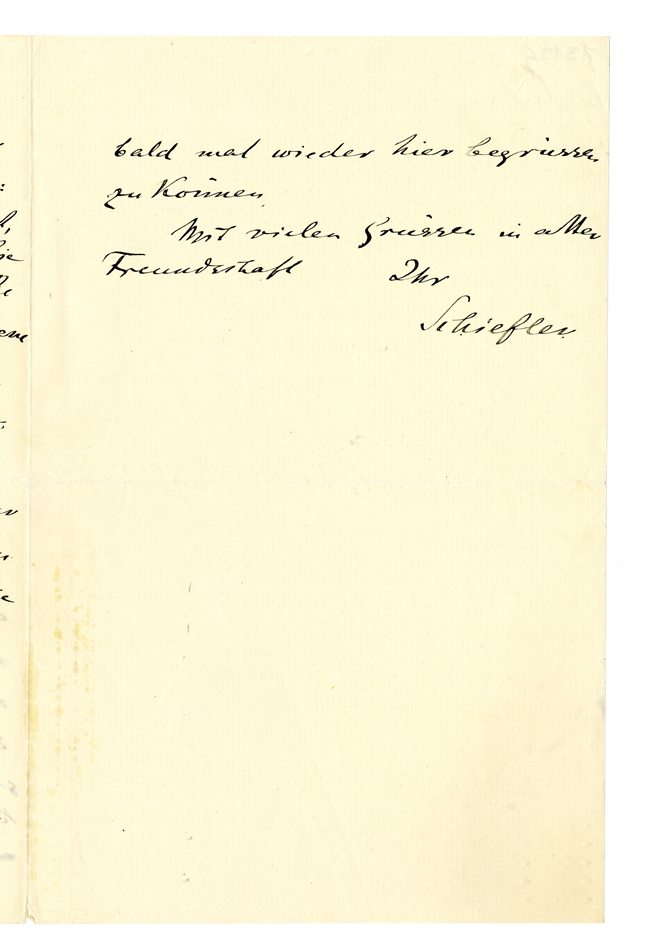 bald mal wieder hier begrüssen
zu können.
Mit vielen Grüssen in alter
Freundschaft Ihr
Schiefler